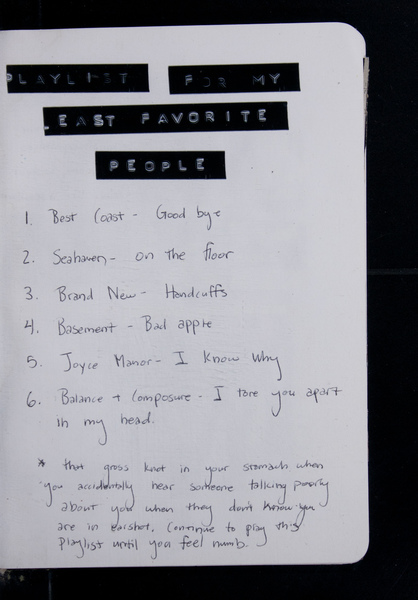 PLAYLIST FOR MY
LEAST FAVORITE
PEOPLE
1. Best Coast - Good bye
2. Seahaven - on the floor
3. Brand New - Handcuffs
4. Basement - Bad apple
5. Joyce Manor - I Know Why
6. Balance + Composure - I tore you apart
in my head.
* that gross knot in your stomach when
you accidentally hear someone talking poorly
about you when they don't know you
are in earshot. Continue to play this
playlist until you feel numb.